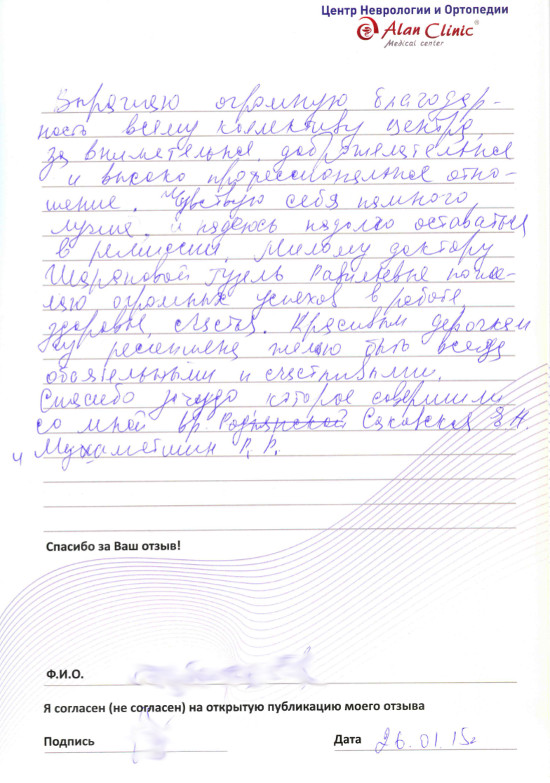 Центр Неврологии и Ортопедии
Alan Clinic®
Medical center
Выражаю огромную благодар-
ность всему коллективу центра,
за внимательное, доброжелательное
и высоко профессиональное отно-
шение. Чувствую себя намного
лучше и надеюсь надолго оставаться
в ремиссии. Милому доктору
Шараповой Гузель Равилевне поже-
лаю огромных успехов в работе,
здоровья, счастья. Красивым девочкам
ресепшена желаю быть всегда
обаятельными и счастливыми.
Спасибо за чудо которое совершили
со мной вр. Саковская З.Н.
и Мухаметшин Р.Р.
Спасибо за Ваш отзыв!
Ф.И.О.
Я согласен (не согласен) на открытую публикацию моего отзыва
Подпись
Дата 26.01.15г